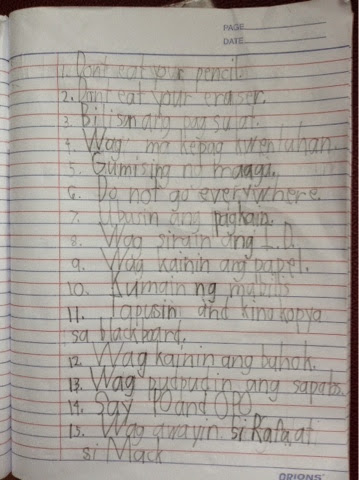 PAGE
DATE
1. Dont eat your pencil.
2. Dont eat your eraser.
3. Bilisan ang pag sulat.
4. Wag ma kepag kwentuhan.
5. Gumising ng maaga.
6. Do not go everywhere.
7. Ubusin ang pagkain.
8. Wag sirain ang I.D.
9. Wag kainin ang papel.
10. Kumain ng mabilis
11. Tapusin and kino kopya
sa blackboard.
12. Wag kainin ang buhok.
13. Wag pudpudin ang sapatos.
14. Say PO and OPO
15. Wag awayin si Rafa at
si Mack
ORIONS